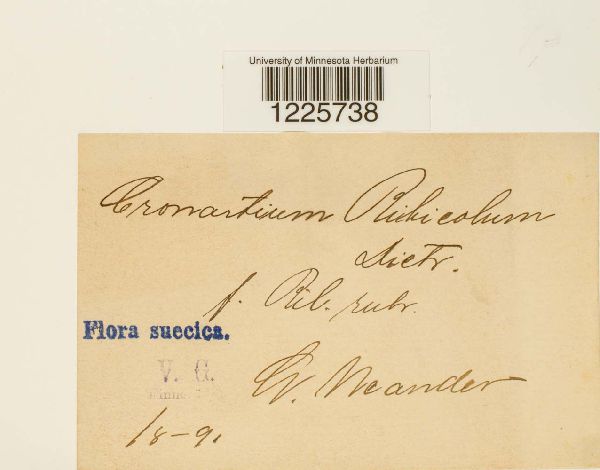 University of Minnesota Herbarium
1225738
Cronartium Ribicolum
Dietr.
f. Rib. rubr.
Flora suecica.
V. G.
Neander
18-9